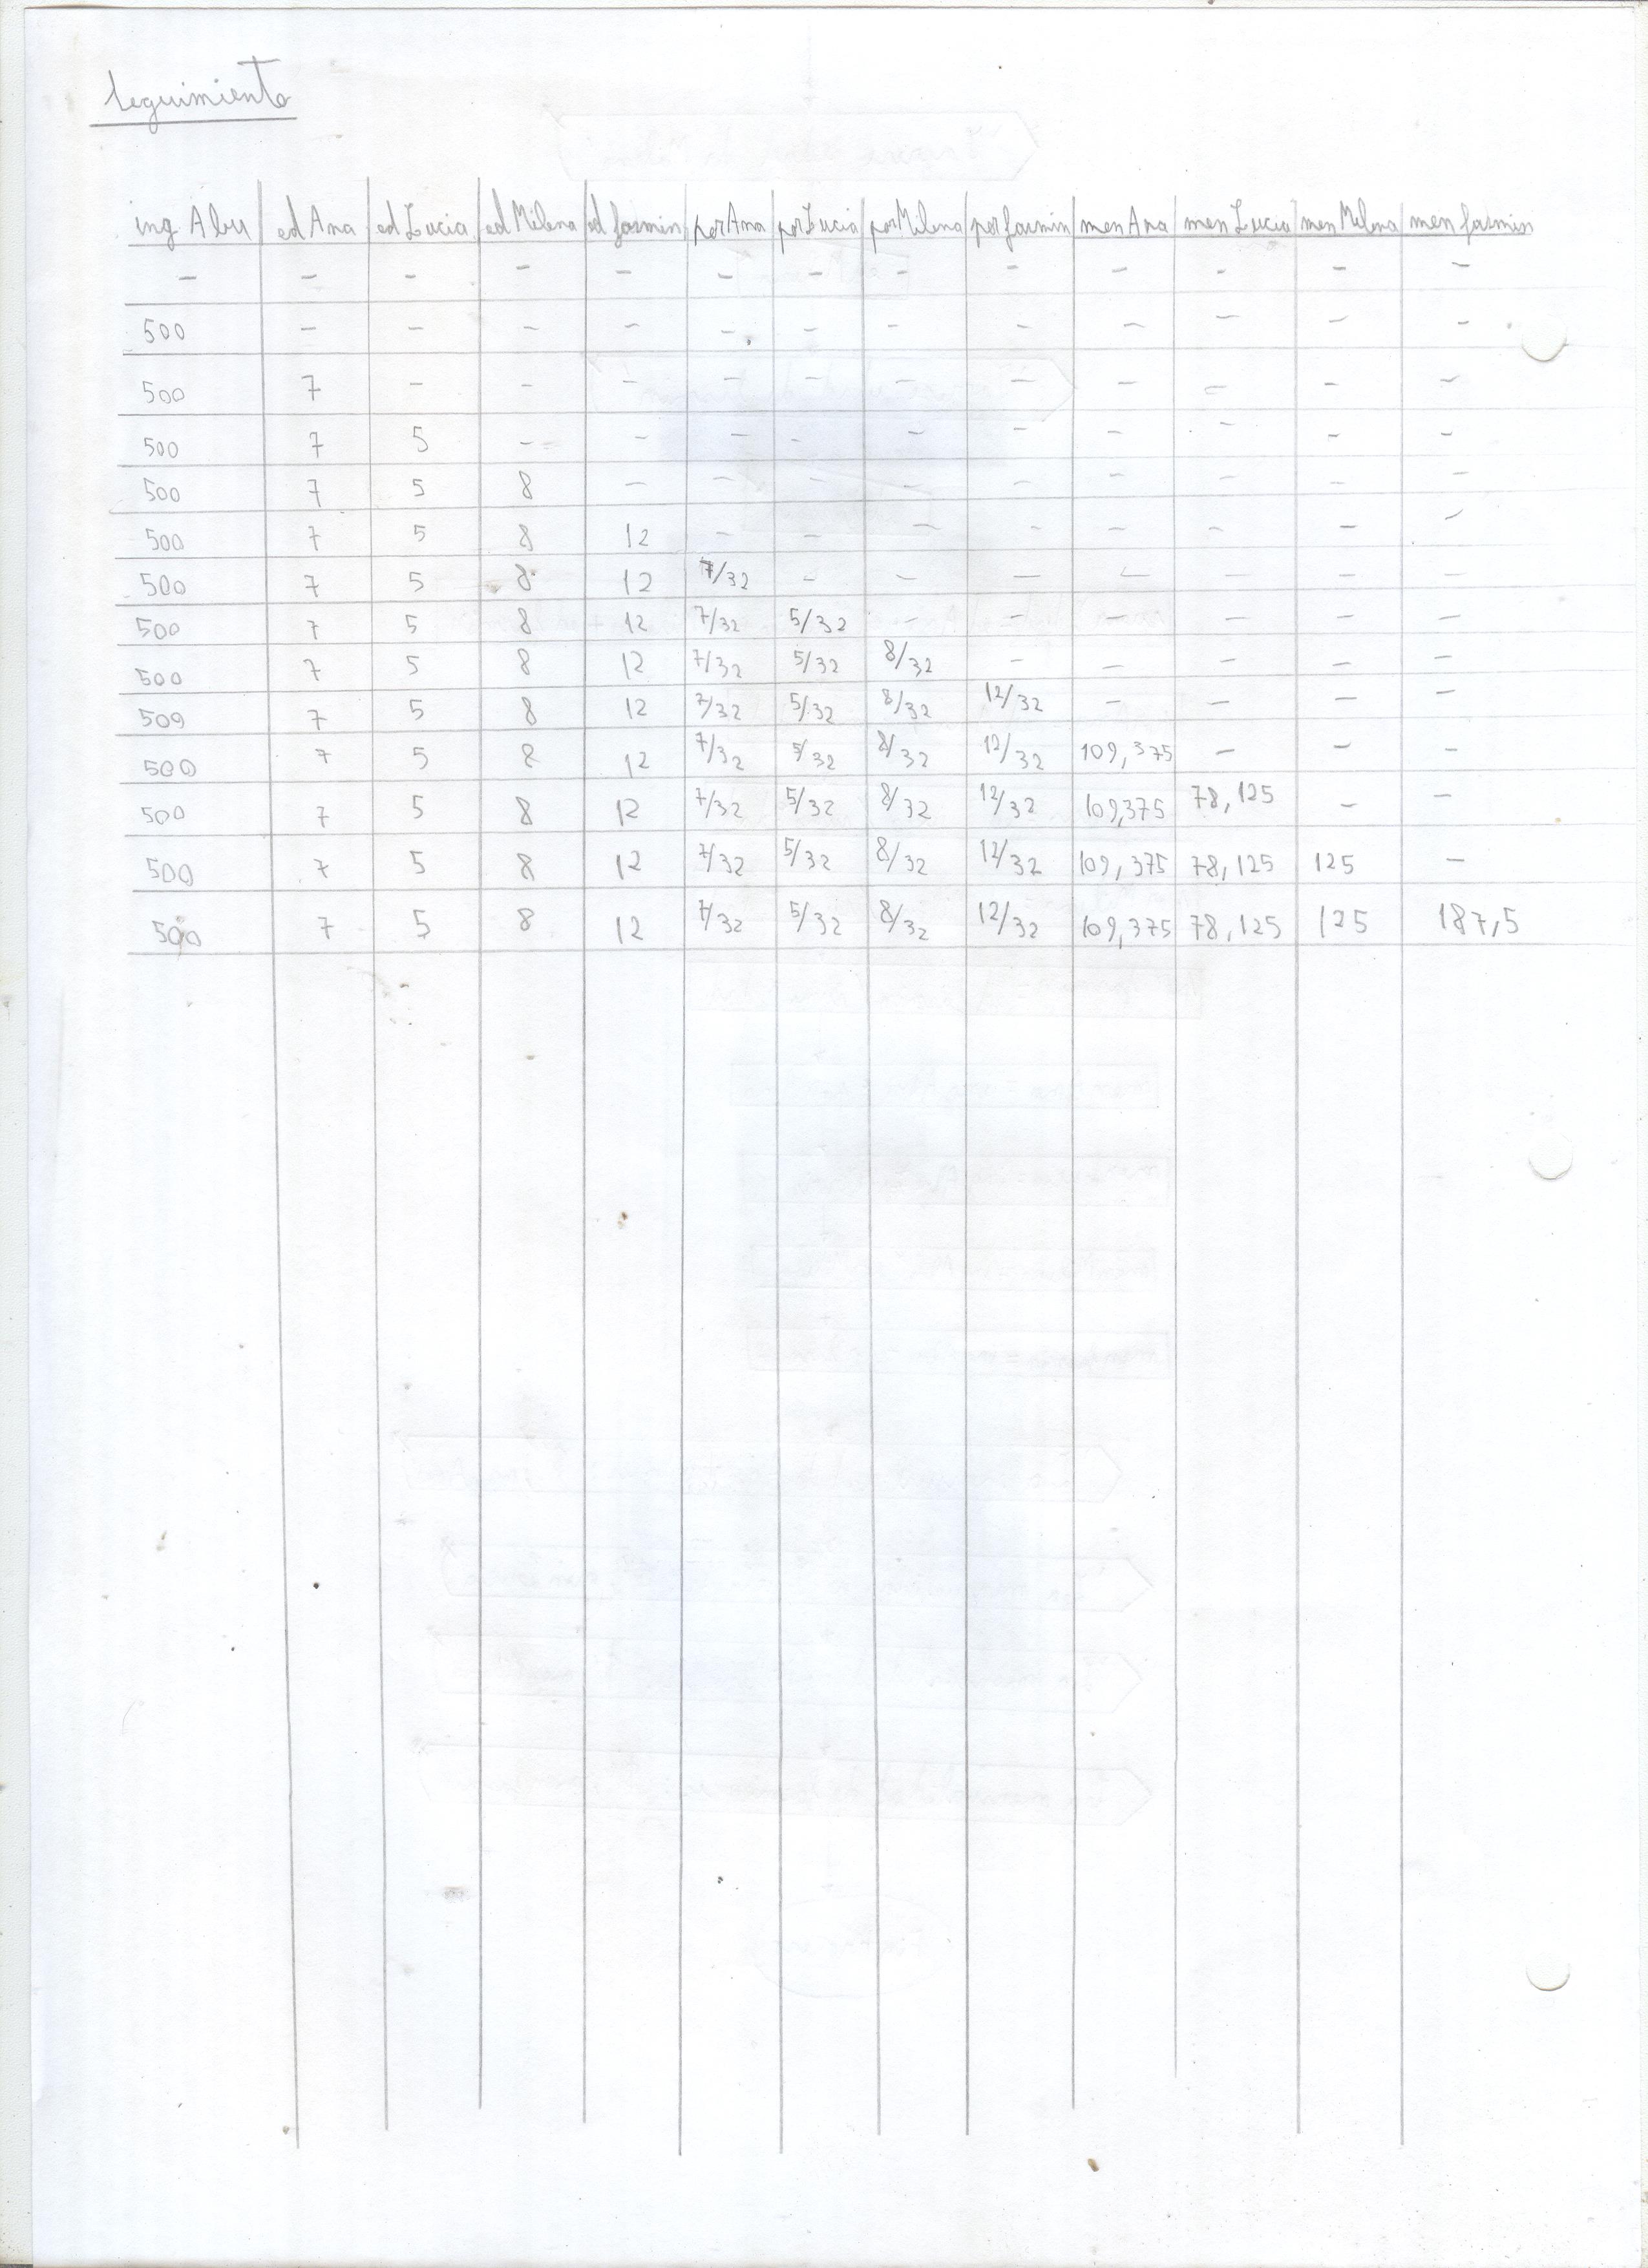 Seguimiento
ing Abu ed Ana ed Lucia ed Milena ed farmin por Ana por Lucia por Milena por farmin men Ana men Lucia men Milena men farmin
- - - - - - - - - - - - -
500 - - - - - - - - - - - -
500 7 - - - - - - - - - - -
500 7 5 - - - - - - - - - -
500 7 5 8 - - - - - - - - -
500 7 5 8 12 - - - - - - - -
500 7 5 8 12 7/32 - - - - - - -
500 7 5 8 12 7/32 5/32 - - - - - -
500 7 5 8 12 7/32 5/32 8/32 - - - - -
500 7 5 8 12 7/32 5/32 8/32 12/32 - - - -
500 7 5 8 12 7/32 5/32 8/32 12/32 109,375 - - -
500 7 5 8 12 7/32 5/32 8/32 12/32 109,375 78,125 - -
500 7 5 8 12 7/32 5/32 8/32 12/32 109,375 78,125 125 -
500 7 5 8 12 7/32 5/32 8/32 12/32 109,375 78,125 125 187,5